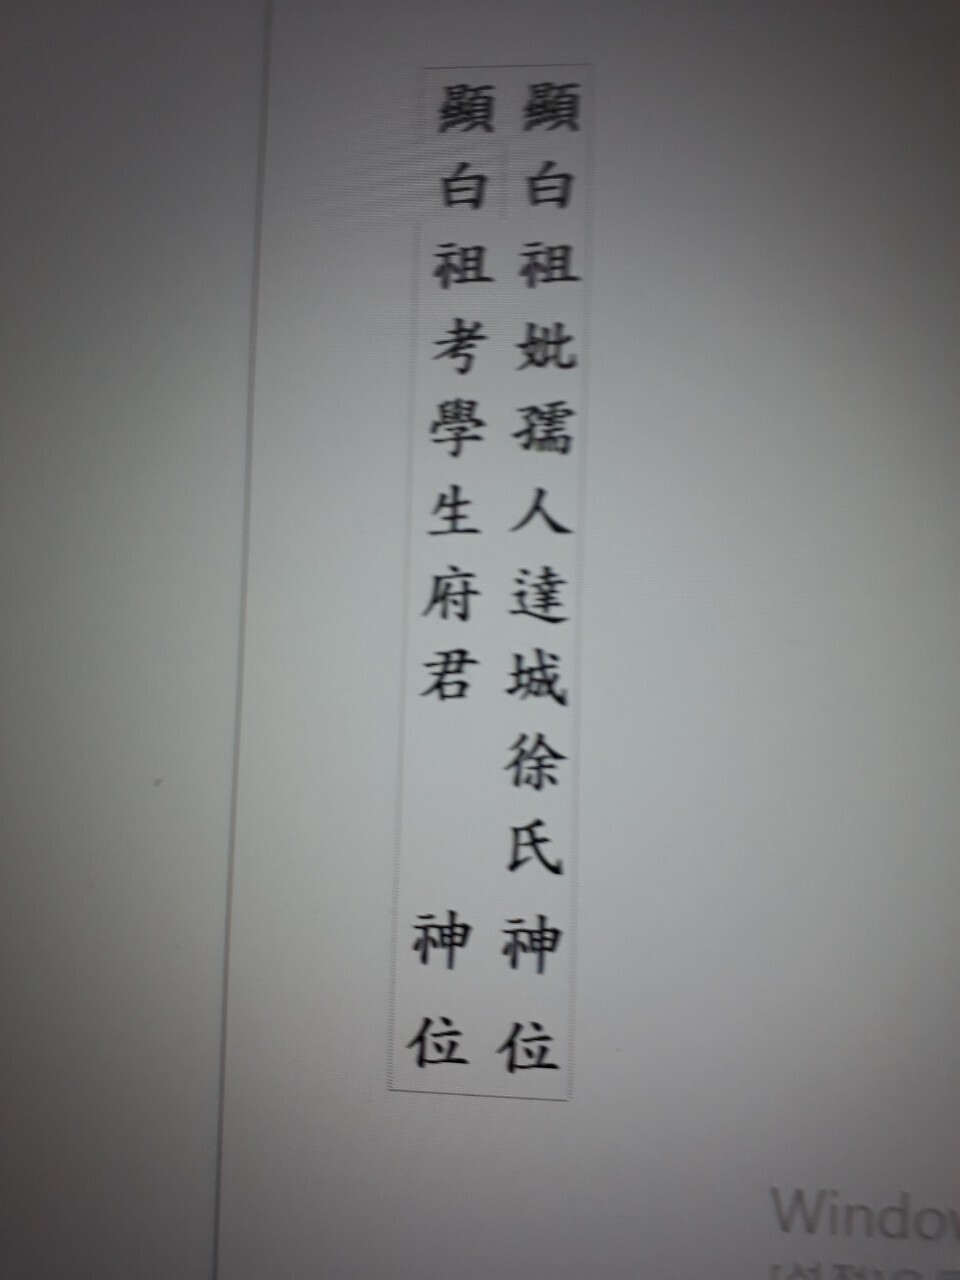 顯白祖妣孺人達城徐氏神位
顯白祖考學生府君 神位